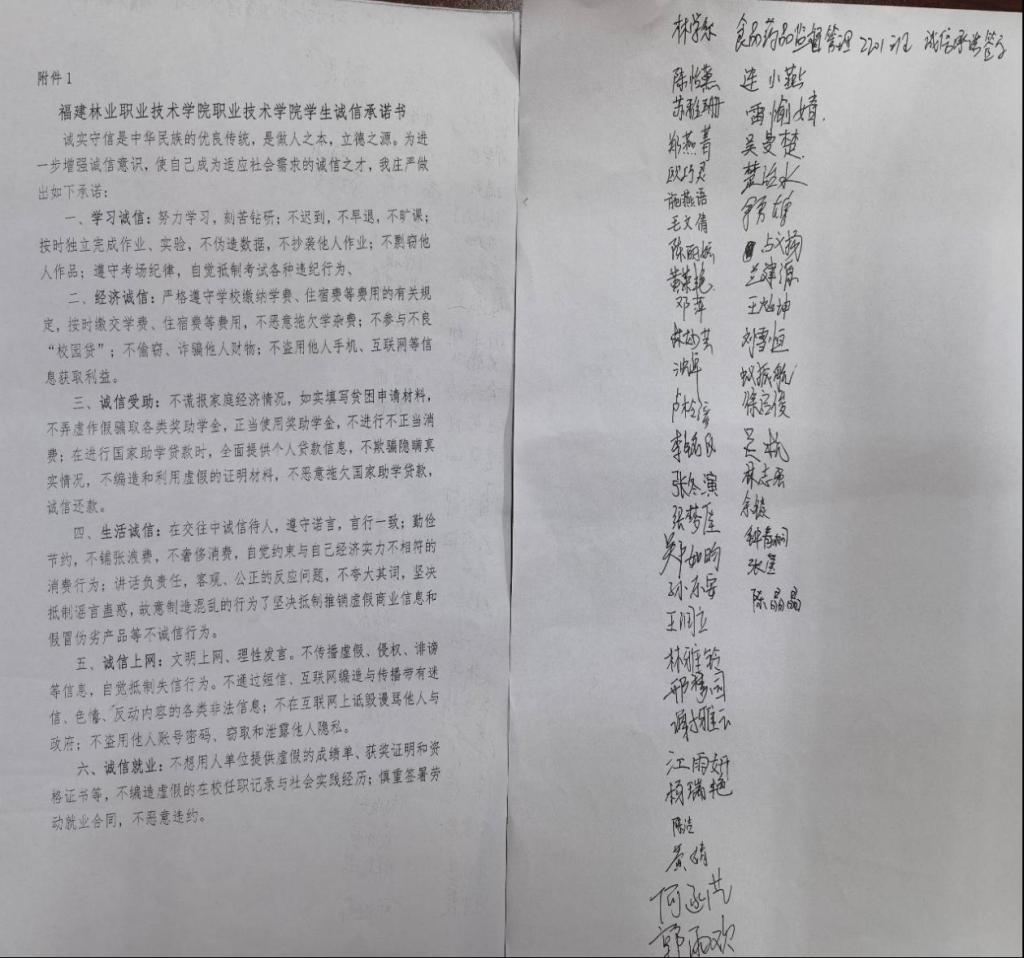 附件1
福建林业职业技术学院职业技术学院学生诚信承诺书
诚实守信是中华民族的优良传统，是做人之本，立德之源。为进
一步增强诚信意识，使自己成为适应社会需求的诚信之才，我庄严做
出如下承诺：
一、学习诚信：努力学习，刻苦钻研；不迟到，不早退，不旷课；
按时独立完成作业、实验，不伪造数据，不抄袭他人作业；不剽窃他
人作品；遵守考场纪律，自觉抵制考试各种违纪行为、
二、经济诚信：严格遵守学校缴纳学费、住宿费等费用的有关规
定，按时缴交学费、住宿费等费用，不恶意拖欠学杂费；不参与不良
“校园贷”；不偷窃、诈骗他人财物；不盗用他人手机、互联网等信
息获取利益。
三、诚信受助：不谎报家庭经济情况，如实填写贫困申请材料，
不弄虚作假骗取各类奖助学金，正当使用奖助学金，不进行不正当消
费；在进行国家助学贷款时，全面提供个人贷款信息，不欺骗隐瞒真
实情况，不编造和利用虚假的证明材料，不恶意拖欠国家助学贷款，
诚信还款。
四、生活诚信：在交往中诚信待人，遵守诺言，言行一致；勤俭
节约，不铺张浪费，不奢侈消费，自觉约束与自己经济实力不相符的
消费行为；讲话负责任，客观、公正的反应问题，不夸大其词，坚决
抵制谣言蛊惑，故意制造混乱的行为了坚决抵制推销虚假商业信息和
假冒伪劣产品等不诚信行为。
五、诚信上网：文明上网、理性发言。不传播虚假、侵权、诽谤
等信息，自觉抵制失信行为。不通过短信、互联网编造与传播带有迷
信、色情、反动内容的各类非法信息；不在互联网上诋毁谩骂他人与
政府；不盗用他人账号密码、窃取和泄露他人隐私。
六、诚信就业：不想用人单位提供虚假的成绩单、获奖证明和资
格证书等，不编造虚假的在校任职记录与社会实践经历；慎重签署劳
动就业合同，不恶意违约。
食品药品监督管理2201班 诚信承诺签字
陈怡薰
苏雅珊
郑燕菁
欧巧灵
施燕语
毛文倩
黄荣艳
邓萍
张冬演
孙乐安
王润立
林雅铃
江雨妍
杨瑞艳
陈洁
黄倩
郭雨欢
连小燕
雷愉婧
吴曼楚
兰建源
王旭坤
刘雪恒
吴杭
林志勇
余毅
钟春桐
陈晶晶